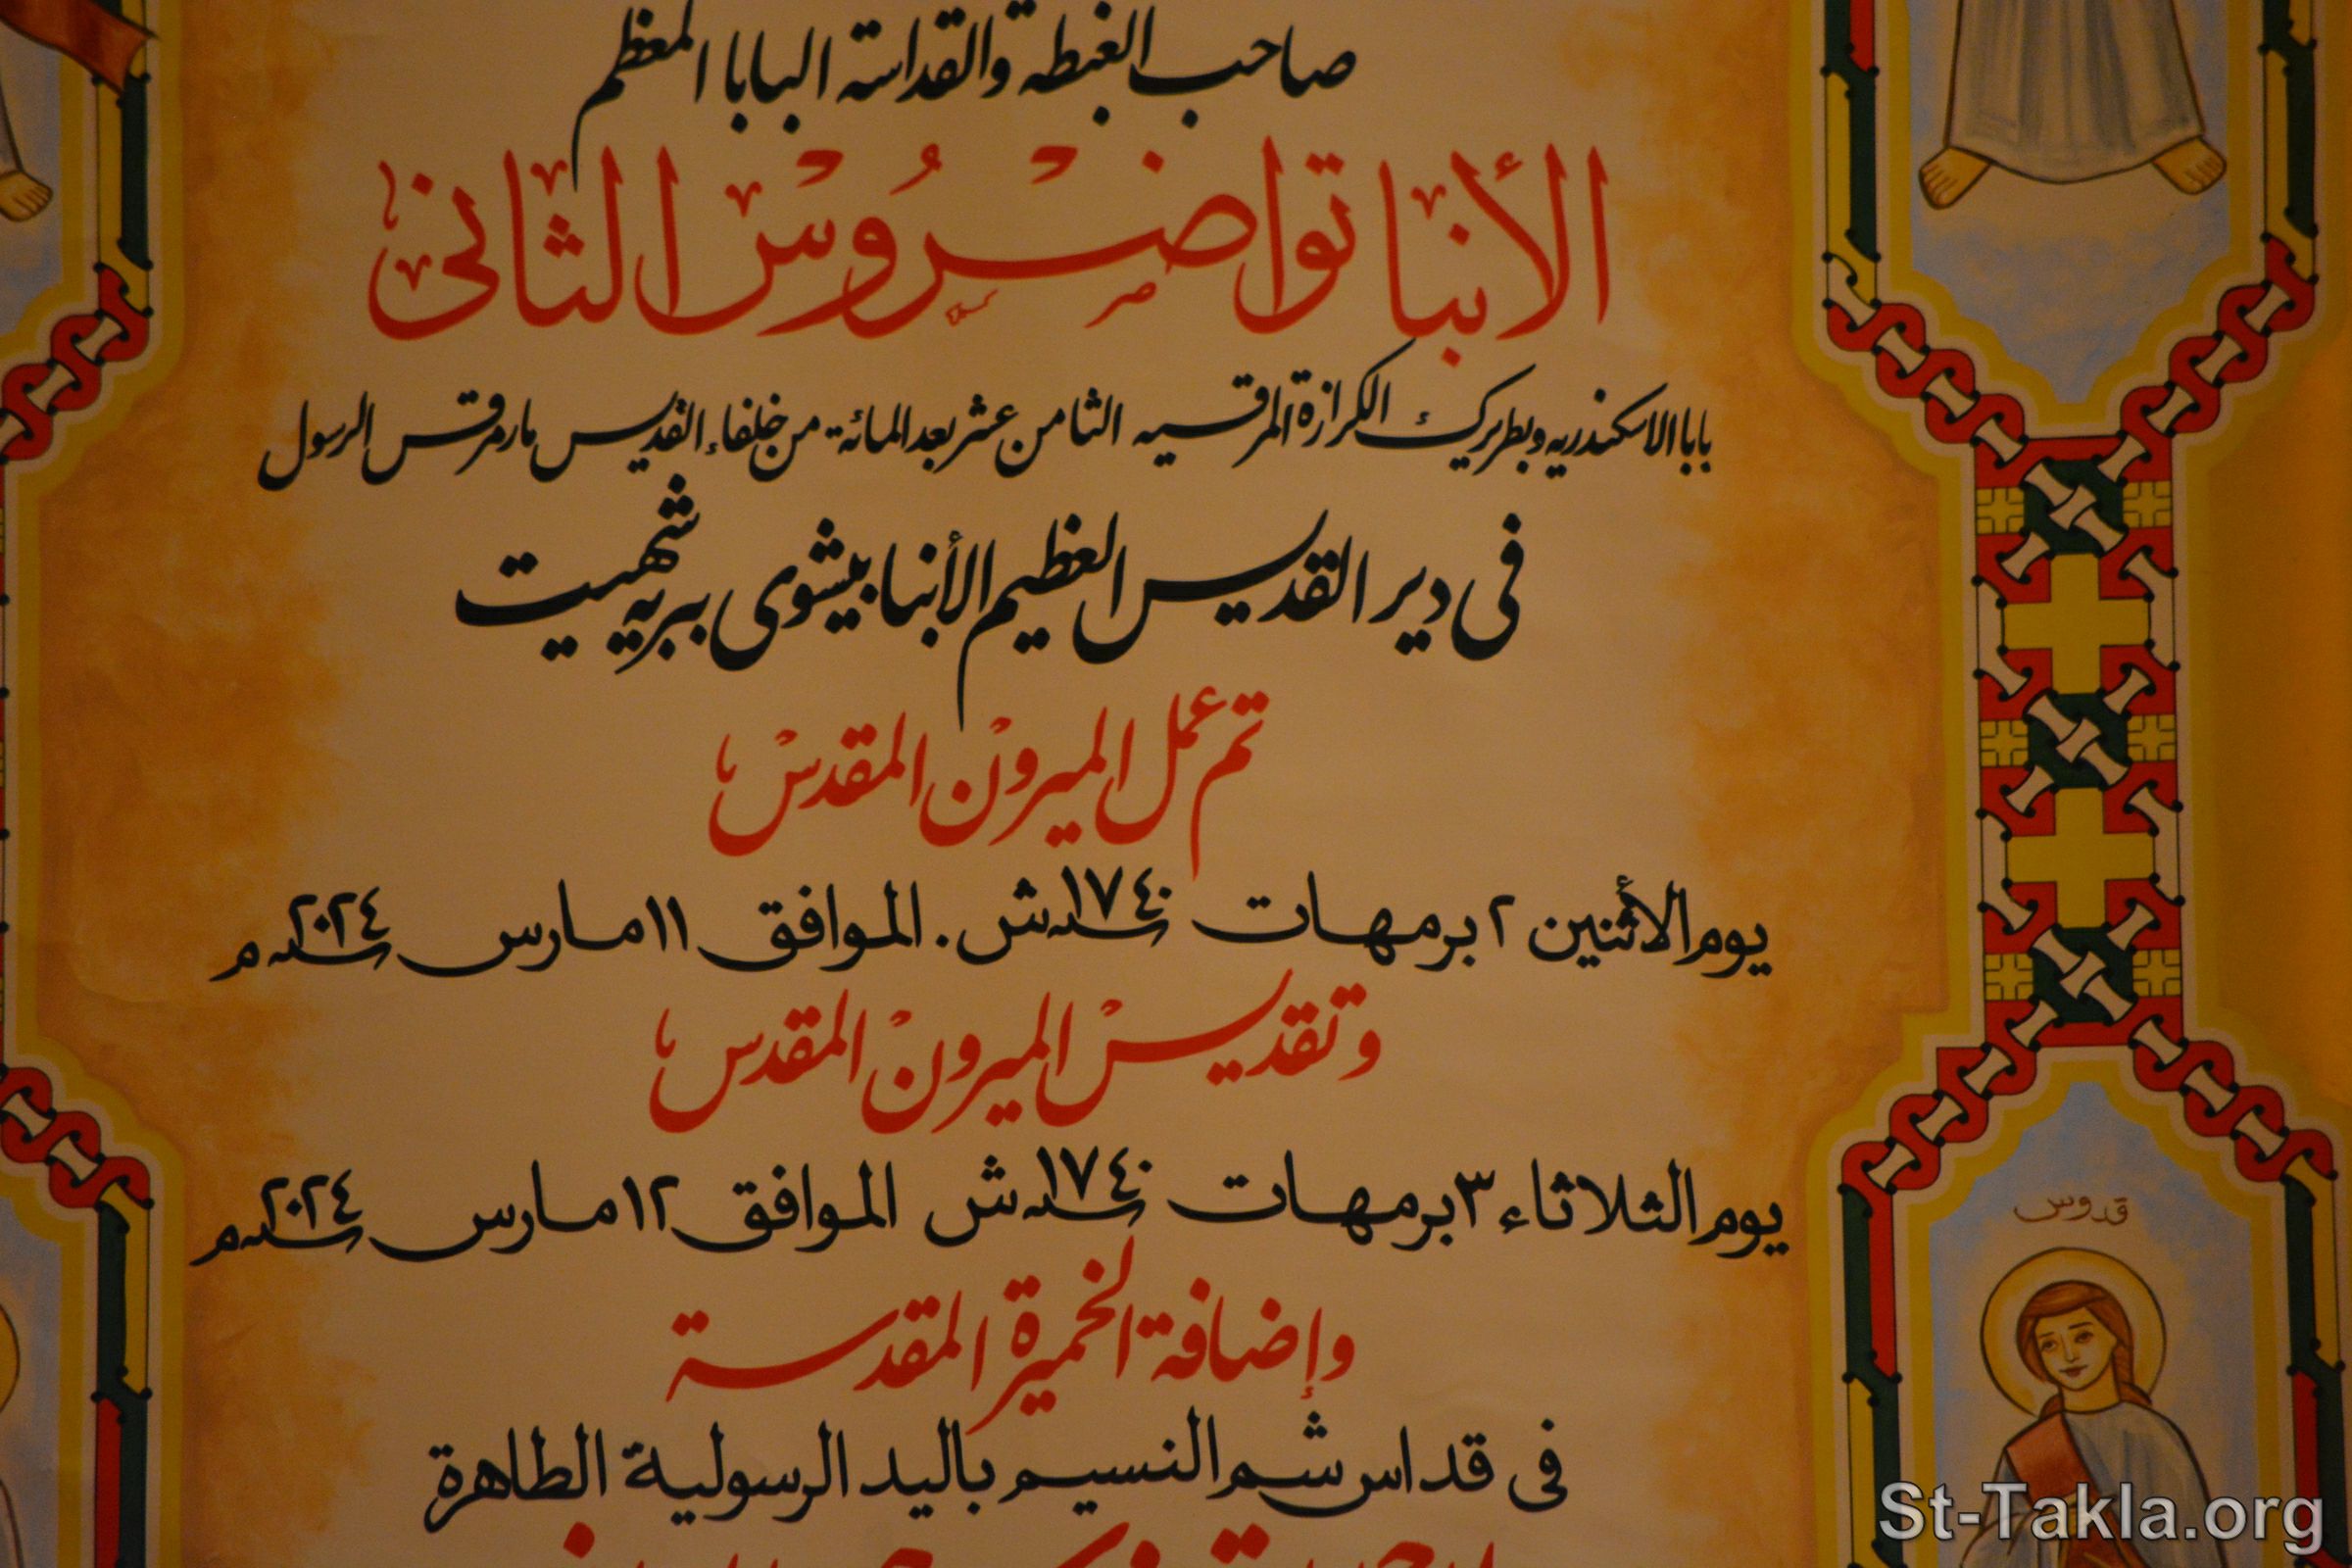 صاحب الغبطة والقداسة البابا المعظم
الأنبا تواضروس الثاني
بابا الاسكندريه وبطريرك الكرازة المرقسيه الثامن عشر بعد المائة من خلفاء القديس مارمرقس الرسول
فى دير القديس العظيم الأنبا بيشوى ببريه شهيت
تم عمل الميرون المقدس
يوم الأثنين ٢ برمهات سنة ١٧٤٠ ش . الموافق ١١ مارس سنة ٢٠٢٤ م
وتقديس الميرون المقدس
يوم الثلاثاء ٣ برمهات سنة ١٧٤٠ ش الموافق ١٢ مارس سنة ٢٠٢٤ م
وإضافة الخميرة المقدسة
فى قداس شم النسيم باليد الرسولية الطاهرة
قدوس
St-Takla.org